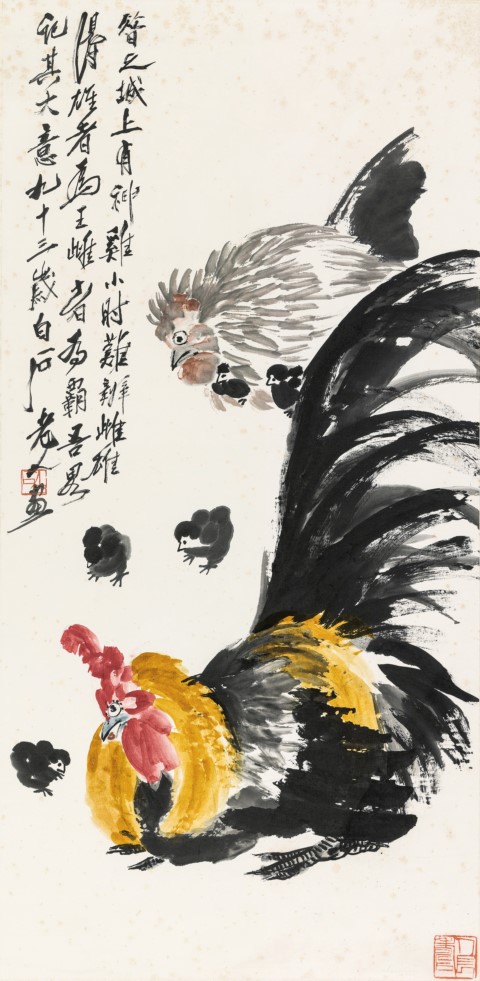 晉之城上有神雞小时難辨雌雄
得雄者為王雌者為霸吾畧
記其大意九十三歲白石老人畫